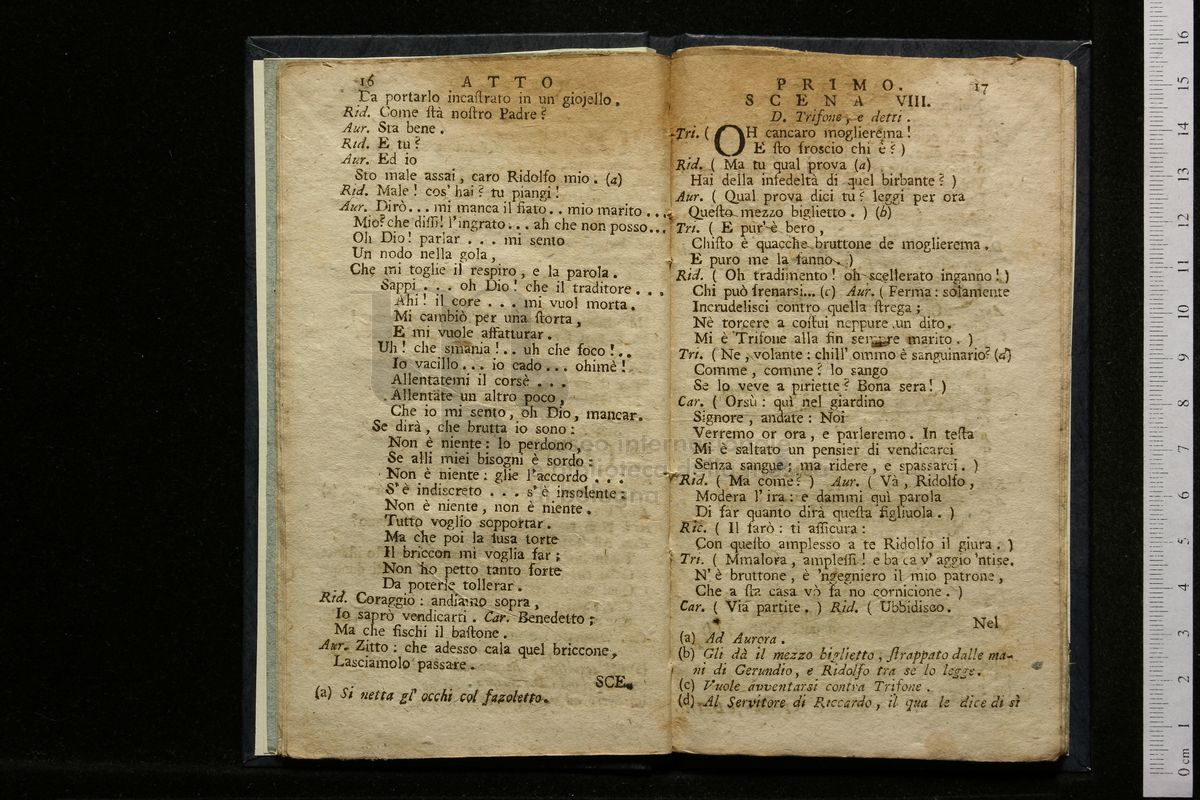 16 ATTO
Da portarlo incaſtrato in un giojello.
Rid. Come ſtà noſtro Padre?
Aur. Sta bene.
Rid. E tu?
Aur. Ed io
Sto male assai, caro Ridolfo mio. (a)
Rid. Male! cos' hai? tu piangi!
Aur. Dirò... mi manca il fiato.. mio marito ...
Mio? che diſſi! l'ingrato... ah che non posso...
Oh Dio! parlar ... mi sento
Un nodo nella gola,
Che mi toglie il respiro, e la parola.
Sappi ... oh Dio! che il traditore ...
Ahi! il core ... mi vuol morta.
Mi cambiò per una ſtorta,
E mi vuole affatturar.
Uh! che smania!.. uh che foco!..
Io vacillo... io cado... ohimè!
Allentatemi il corsè ...
Allentate un altro poco,
Che io mi sento, oh Dio, mancar.
Se dirà, che brutta io sono:
Non è niente: lo perdono,
Se alli miei bisogni è sordo:
Non è niente: glie l'accordo ...
S' è indiscreto ... s' è insolente:
Non è niente, non è niente.
Tutto voglio sopportar.
Ma che poi la fusa torte
Il briccon mi voglia far;
Non ho petto tanto forte
Da poterle tollerar.
Rid. Coraggio: andiamo sopra,
Io saprò vendicarti. Car. Benedetto;
Ma che fischi il baſtone.
Aur. Zitto: che adesso cala quel briccone,
Lasciamolo passare.
SCE.
(a) Si netta gl' occhi col fazoletto.
PRIMO. 17
SCENA VIII.
D. Trifone, e detti.
Tri. ( OH cancaro moglierema!
E ſto froscio chi è? )
Rid. ( Ma tu qual prova (a)
Hai della infedeltà di quel birbante? )
Aur. ( Qual prova dici tu? leggi per ora
Queſto mezzo biglietto. ) (b)
Tri. ( E pur' è bero,
Chiſto è quacche bruttone de moglierema.
E puro me la fanno. )
Rid. ( Oh tradimento! oh scellerato inganno! )
Chi può frenarsi... (c) Aur. ( Ferma: solamente
Incrudelisci contro quella ſtrega;
Nè torcere a coſtui neppure un dito.
Mi è Trifone alla fin sempre marito. )
Tri. ( Ne, volante: chill' ommo è sanguinario? (d)
Comme, comme? lo sango
Se lo veve a piriette? Bona sera! )
Car. ( Orsù: quì nel giardino
Signore, andate: Noi
Verremo or ora, e parleremo. In teſta
Mi è saltato un pensier di vendicarci
Senza sangue; ma ridere, e spassarci. )
Rid. ( Ma come? ) Aur. ( Và, Ridolfo,
Modera l' ira: e dammi quì parola
Di far quanto dirà queſta figliuola. )
Ric. ( Il farò: ti aſſicura:
Con queſto amplesso a te Ridolfo il giura. )
Tri. ( Mmalora, ampleſſi! e ba ca v' aggio 'ntise.
N' è bruttone, è 'ngegniero il mio patrone,
Che a ſta casa vò fa no cornicione. )
Car. ( Via partite. ) Rid. ( Ubbidisco.
Nel
(a) Ad Aurora.
(b) Gli dà il mezzo biglietto, ſtrappato dalle ma-
ni di Gerundio, e Ridolfo tra sè lo legge.
(c) Vuole avventarsi contra Trifone.
(d) Al Servitore di Riccardo, il qua le dice di sì